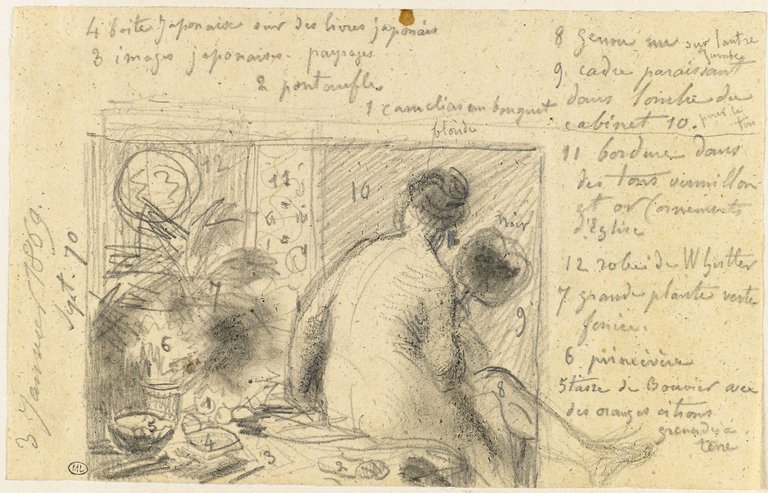 4 boite Japonaise sur des livres japonais
3 images japonaises. paysages
2 pantoufle
1 camelias en bouquet
blonde
8 Genou nu sur l'autre
jambe
9. cadre paraissant
dans l'ombre du
cabinet 10. pour le
ton
11 bordure dans
des tons vermillon
et or (ornements
d'Eglise
12 robe de Whistler
7 grande plante verte
foncée.
6 primevère
5 tasse de Bouvier avec
des oranges citrons
grenades
terre
3 Janvier 1869.
Sept. 70
12
11
10
noir
9
7
6
8
5
1
4
3
2
ML